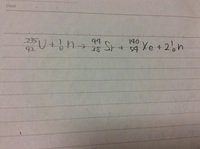 ²³⁵₉₂U + ¹₀n → ⁹⁴₃₈Sr + ¹⁴⁰₅₄Xe + 2¹₀n